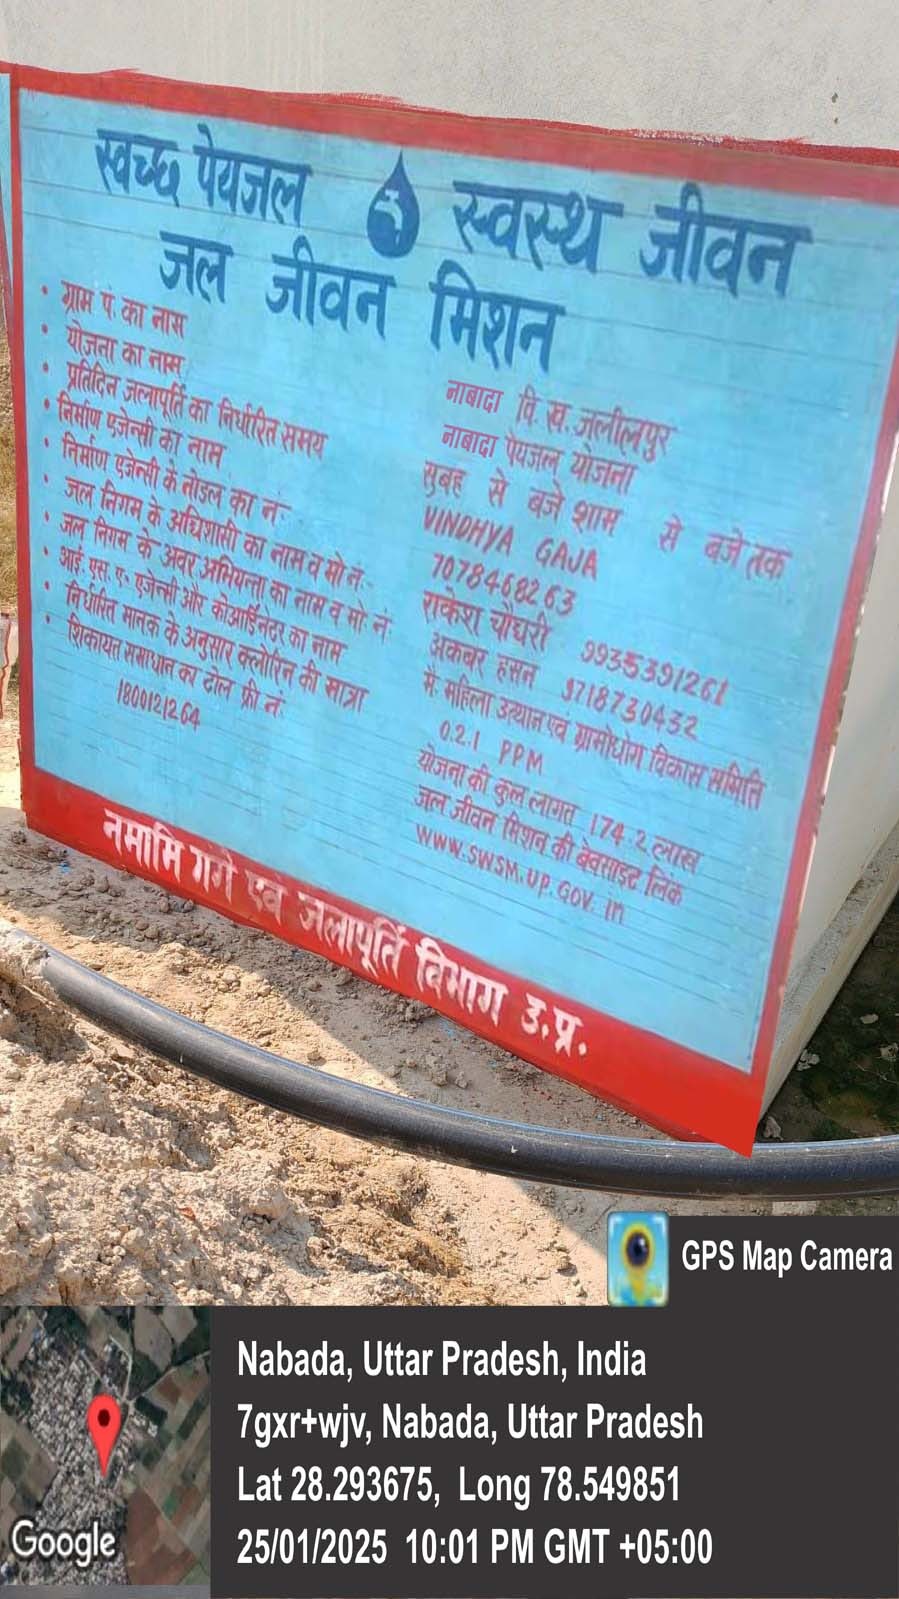 स्वच्छ पेयजल स्वस्थ जीवन
जल जीवन मिशन
• ग्राम पं. का नाम
• योजना का नाम
• प्रतिदिन जलापूर्ति का निर्धारित समय
• निर्माण एजेन्सी का नाम
• निर्माण एजेन्सी के नोडल का नं.
• जल निगम के अधिशासी का नाम व मो नं.-
• जल निगम के अवर अभियन्ता का नाम व मो. नं.
• आई. एस. ए. एजेन्सी और कोआर्डिनेटर का नाम
• निर्धारित मानक के अनुसार क्लोरिन की मात्रा
• शिकायत समाधान का टोल फ्री नं.
1800121264
नाबादा वि. ख. जलीलपुर
नाबादा पेयजल योजना
सुबह से बजे शाम से बजे तक
VINDHYA GAJA
7078468263
राकेश चौधरी 9935391261
अकबर हसन 9718730432
मै. महिला उत्थान एवं ग्रामोधोग विकास समिति
0.2.1 PPM
योजना की कुल लागत 174.2 लाख
जल जीवन मिशन की बेवसाइट लिंक
www.SWSM.UP.GOV.in
नमामि गंगे एवं जलापूर्ति विभाग उ.प्र.
GPS Map Camera
Nabada, Uttar Pradesh, India
7gxr+wjv, Nabada, Uttar Pradesh
Lat 28.293675, Long 78.549851
25/01/2025 10:01 PM GMT +05:00
Google